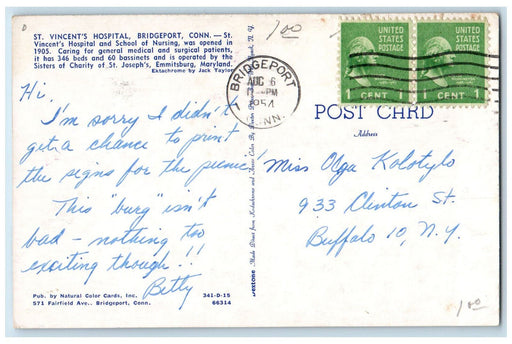 ST. VINCENT'S HOSPITAL, BRIDGEPORT, CONN. — St.
Vincent's Hospital and School of Nursing, was opened in
1905. Caring for general medical and surgical patients,
it has 346 beds and 60 bassinets and is operated by the
Sisters of Charity of St. Joseph's, Emmitsburg, Maryland.
Ektachrome by Jack Taylor
Hi,
I'm sorry I didn't
get a chance to print
the signs for the picnic!
This "burg" isn't
bad – nothing too
exciting though!!
Betty
Pub. by Natural Color Cards, Inc.
571 Fairfield Ave., Bridgeport, Conn.
341-D-15
66314
1 00
BRIDGEPORT
AUG 6
PM
1954
CONN.
UNITED
STATES
POSTAGE
1 CENT 1
UNITED
STATES
POSTAGE
1 CENT 1
POST CARD
Address
Miss Olga Kolotylo
933 Clinton St.
Buffalo 10, N.Y.
1 00